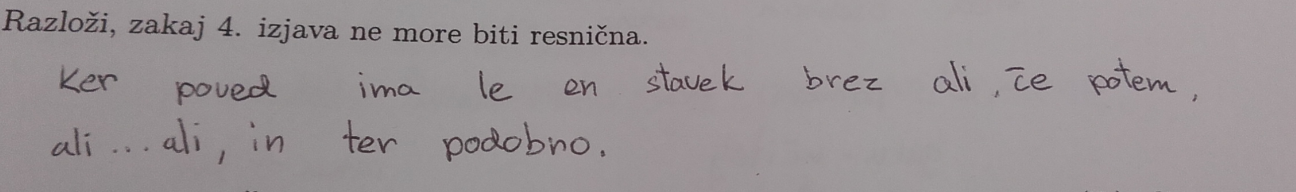 Razloži, zakaj 4. izjava ne more biti resnična.
Ker poved ima le en stavek brez ali, če potem,
ali ... ali, in ter podobno.